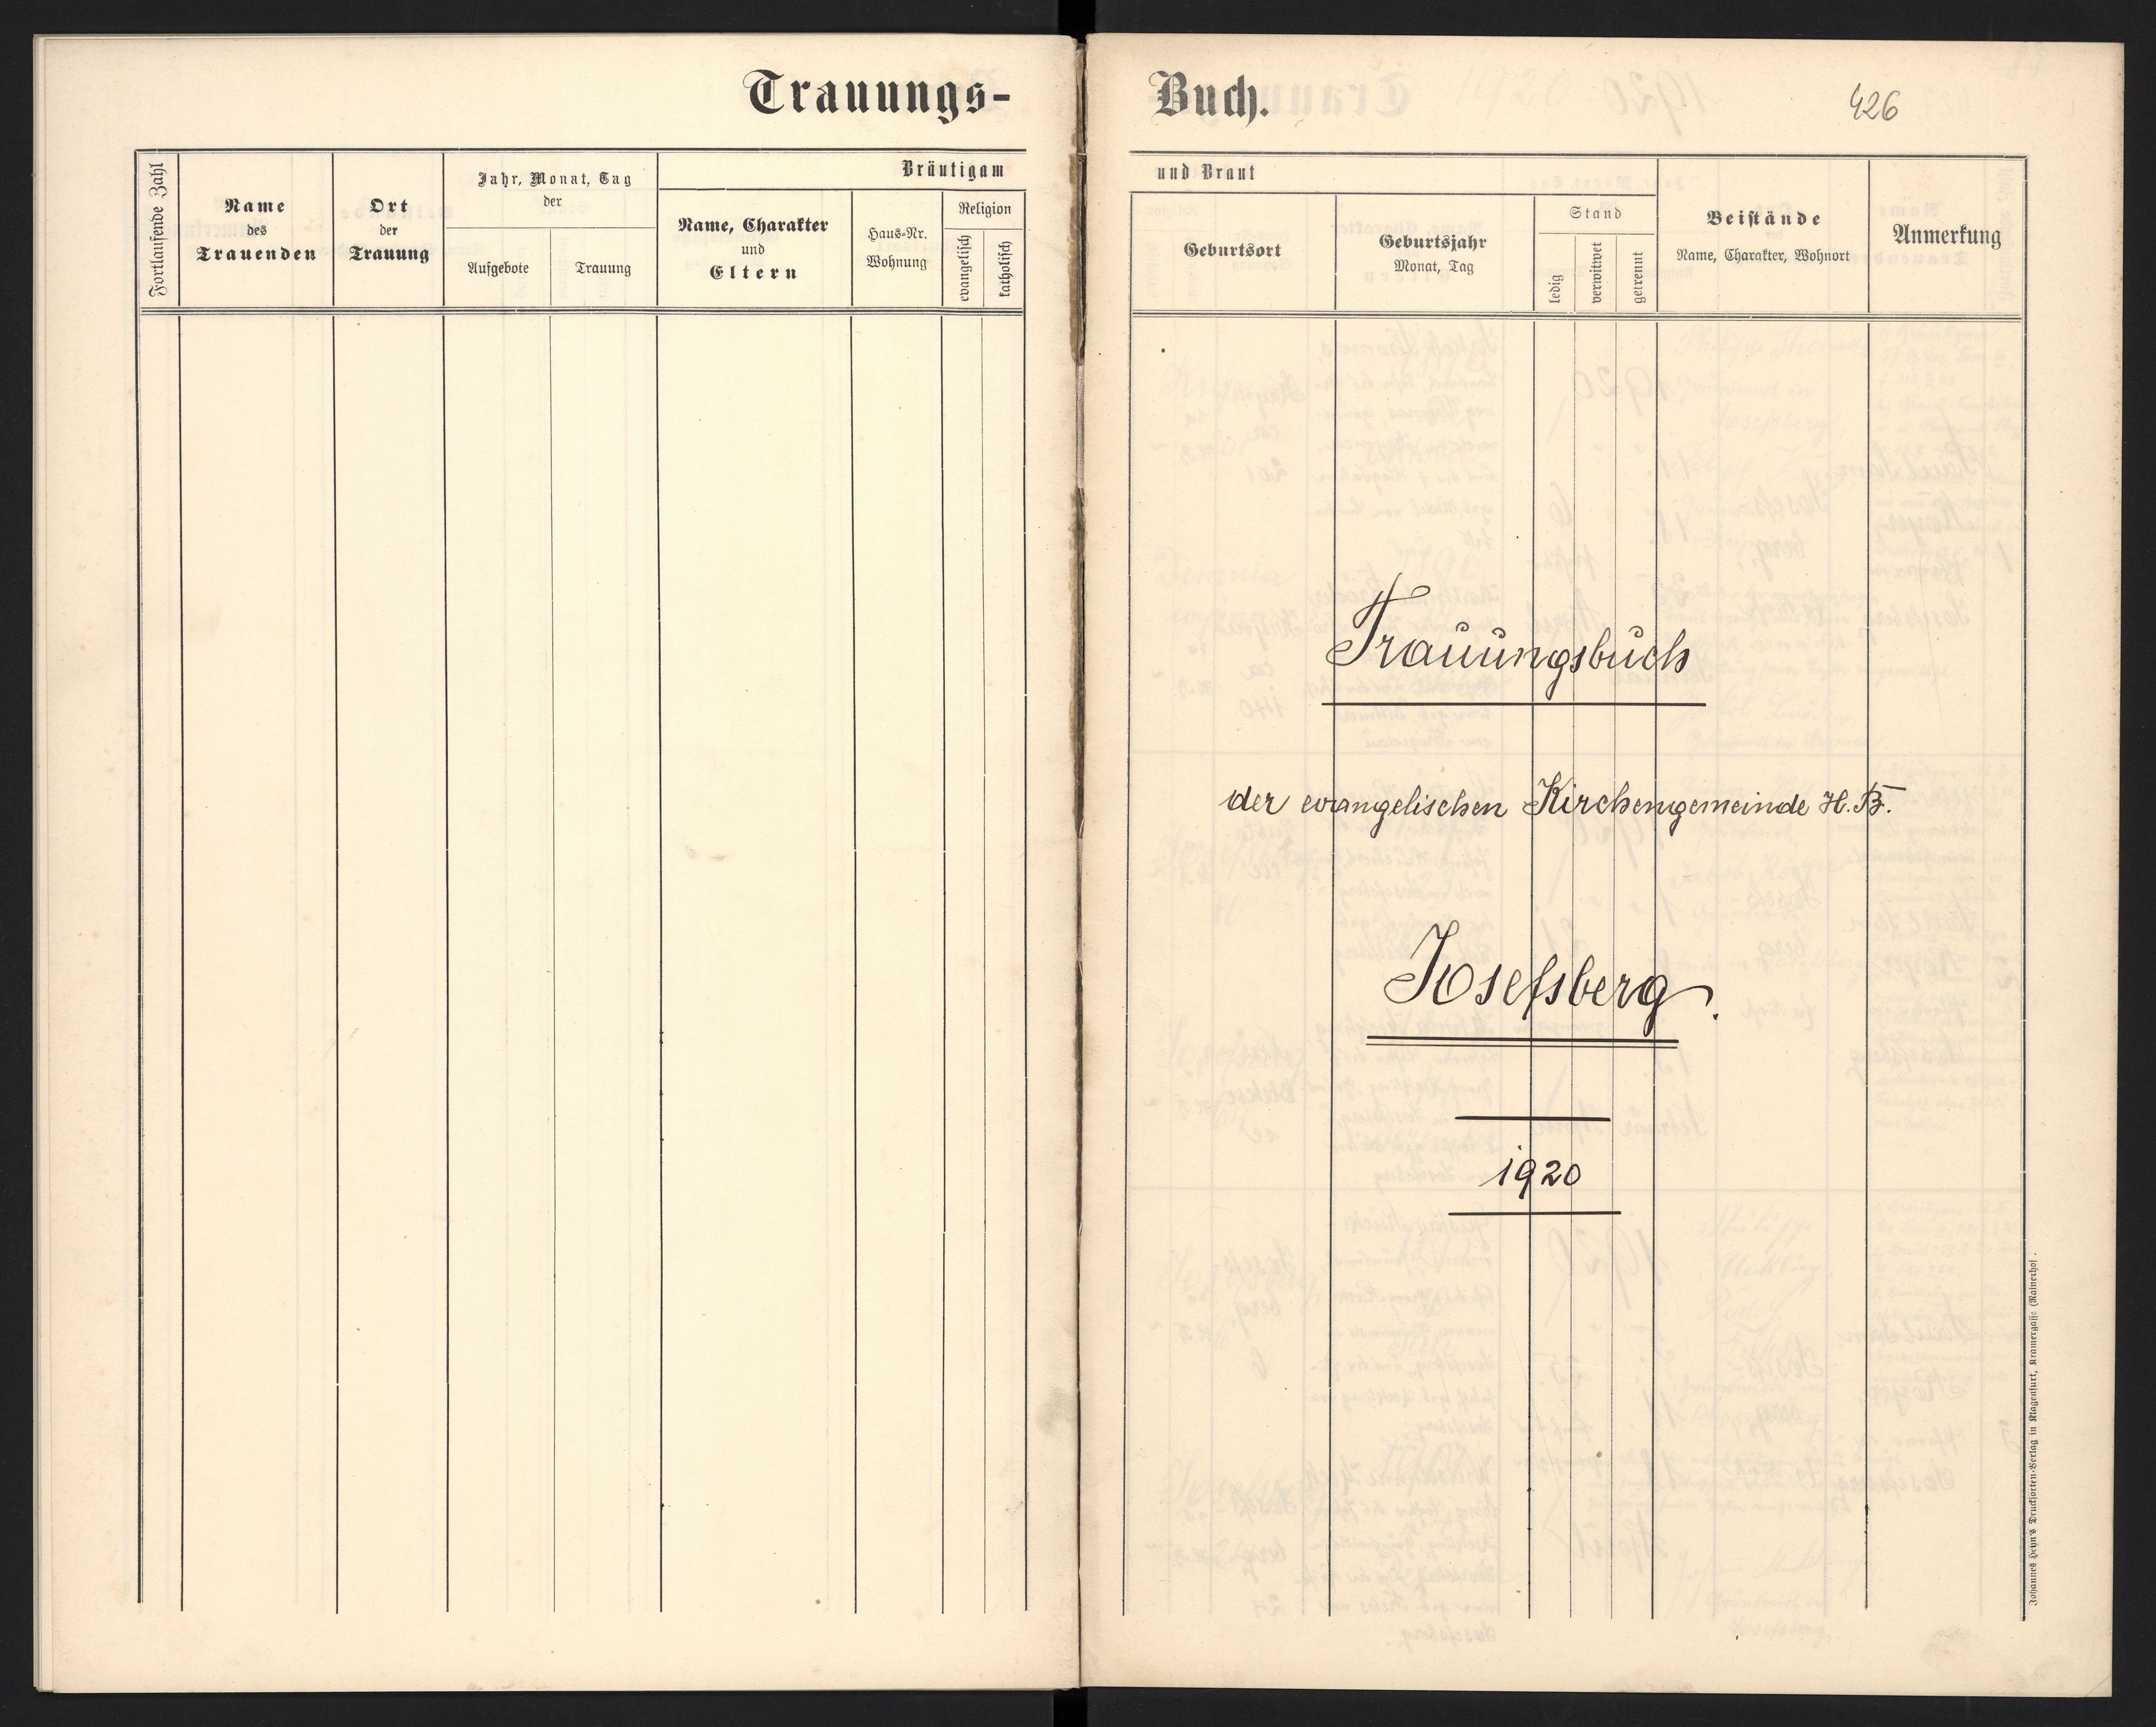 Trauungs-
Fortlaufende Zahl
Name
des
Trauenden
Ort
der
Trauung
Jahr, Monat, Tag
der
Aufgebote
Trauung
Bräutigam
Name, Charakter
und
Eltern
Haus-Nr.
Wohnung
Religion
evangelisch
katholisch
Buch.
426
und Braut
Geburtsort
Geburtsjahr
Monat, Tag
Stand
ledig
verwitwet
getrennt
Beistände
Name, Charakter, Wohnort
Anmerkung
Trauungsbuch
der evangelischen Kirchengemeinde H. B.
Josefsberg.
1920
Johannes Heyn's Drucksorten-Verlag in Klagenfurt, Kramergasse (Rainerhof).